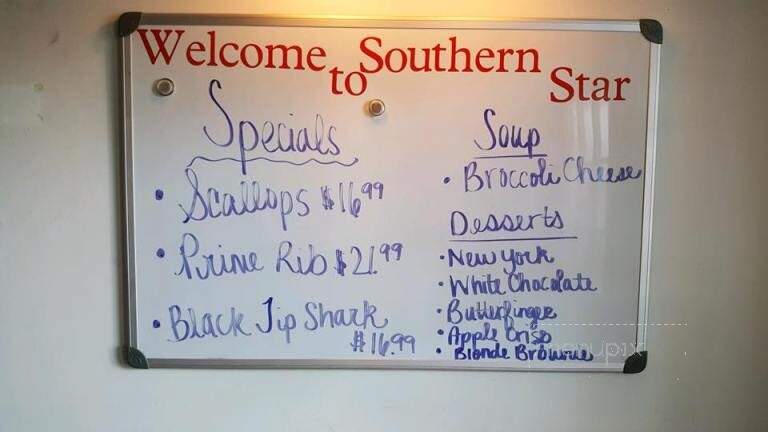 Welcome to Southern Star
Specials
• Scallops $16.99
• Prime Rib $21.99
• Black Tip Shark
$16.99
Soup
• Broccoli Cheese
Desserts
• New York
• White Chocolate
• Butterfinger
• Apple Crisp
• Blonde Brownie
menupix